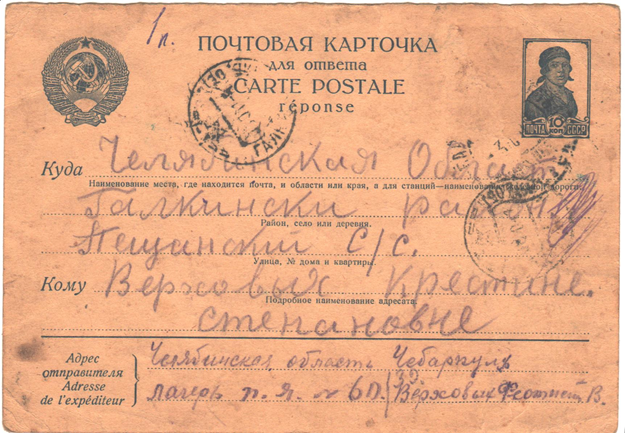 1 п.
ПОЧТОВАЯ КАРТОЧКА
для ответа
CARTE POSTALE
réponse
10 КОП
ПОЧТА СССР
Куда Челябинская Област
Наименование места, где находится почта, и области или края, а для станций—наименование дороги
Галкински район
Район, село или деревня.
Пещанский С/С.
Улица, № дома и квартиры.
Кому Верховых Крестине.
Подробное наименование адресата.
степановне
Адрес отправителя
Adresse de l'expéditeur
Челябинская область Чебаркуль
лагерь п. я. № 6П. Верховых В.